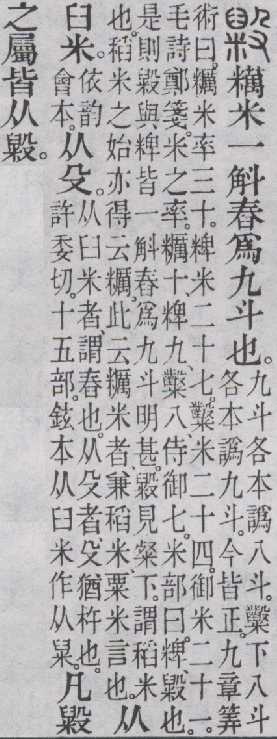 毇 糲米一斛舂爲九斗也。九斗各本譌八斗。糳下八斗
各本譌九斗。今皆正。九章筭
術曰。糲米率三十。粺米二十七。糳米二十四。御米二十一。
毛詩鄭箋。米之率。糲十、粺九、糳八、侍御七。米部曰。粺、毇也。
是則毇與粺皆一斛舂爲九斗明甚。毇見粲下。謂稻米
也。稻米之始亦得云糲。此云糲米者、兼稻米粟米言也。从
臼米。依韵會本。从殳。从臼米者、謂舂也。从殳者、殳猶杵也。
許委切。十五部。鉉本从臼米作从㮂。凡毇
之屬皆从毇。